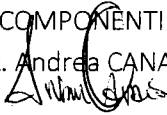 COMPONENTI
. Andrea CANA